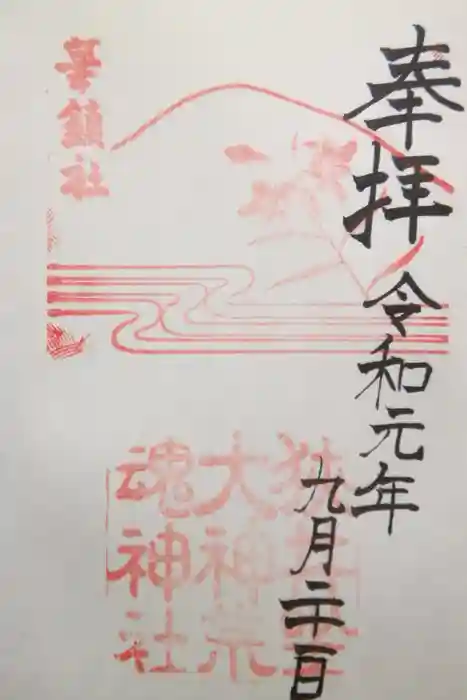 奉拝
令和元年
九月二十一日
狭井坐
大神荒
魂神社
華鎮社